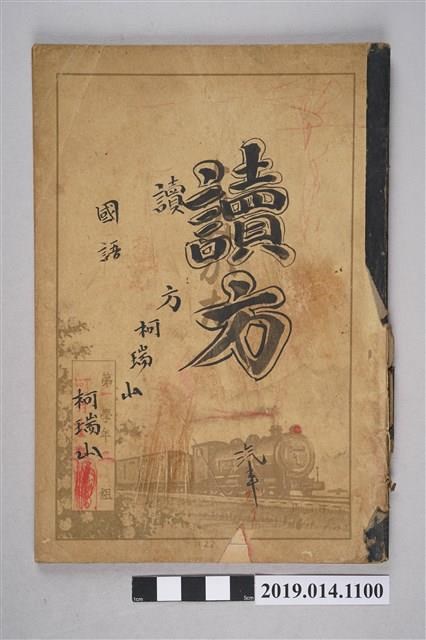 讀方
讀方
柯瑞山
國語
第一學年 組
柯瑞山
汽車
22
1cm
5cm
2019.014.1100